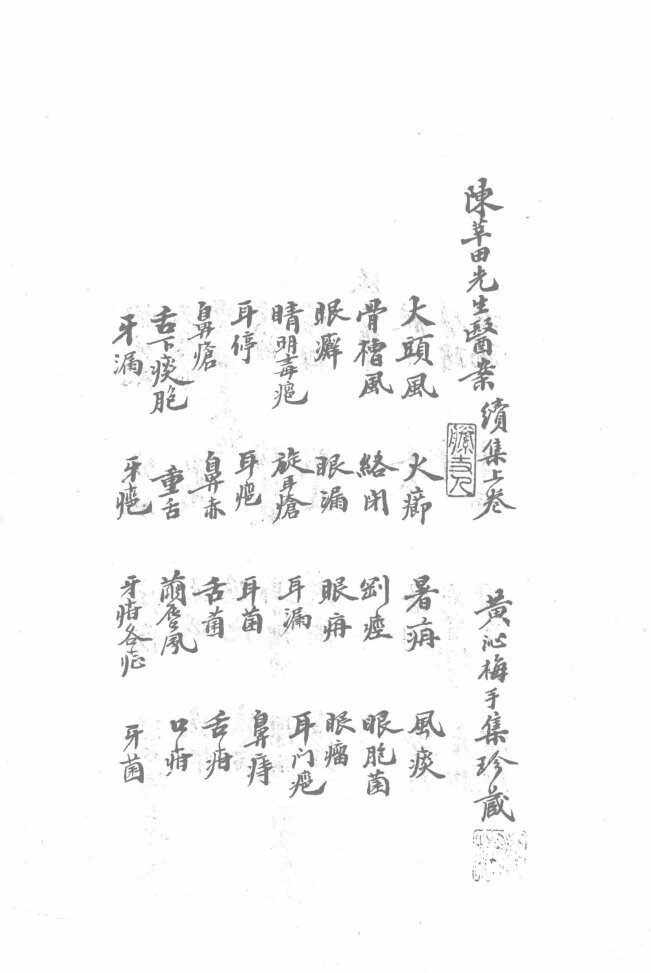 陳莘田先生醫案續集上卷 黃沁梅手集珍藏
大頭風 火癤 暑癤 風痰
骨槽風 絡閉 剛痙 眼胞菌
眼癬 眼漏 眼疳 眼瘤
睛明毒疤 旋耳瘡 耳漏 耳门疤
耳停 耳疤 耳菌 鼻痔
鼻瘡 鼻赤 舌菌 舌疳
舌下痰胞 重舌 繭唇風 口疳
牙漏 牙疤 牙疳各症 牙菌